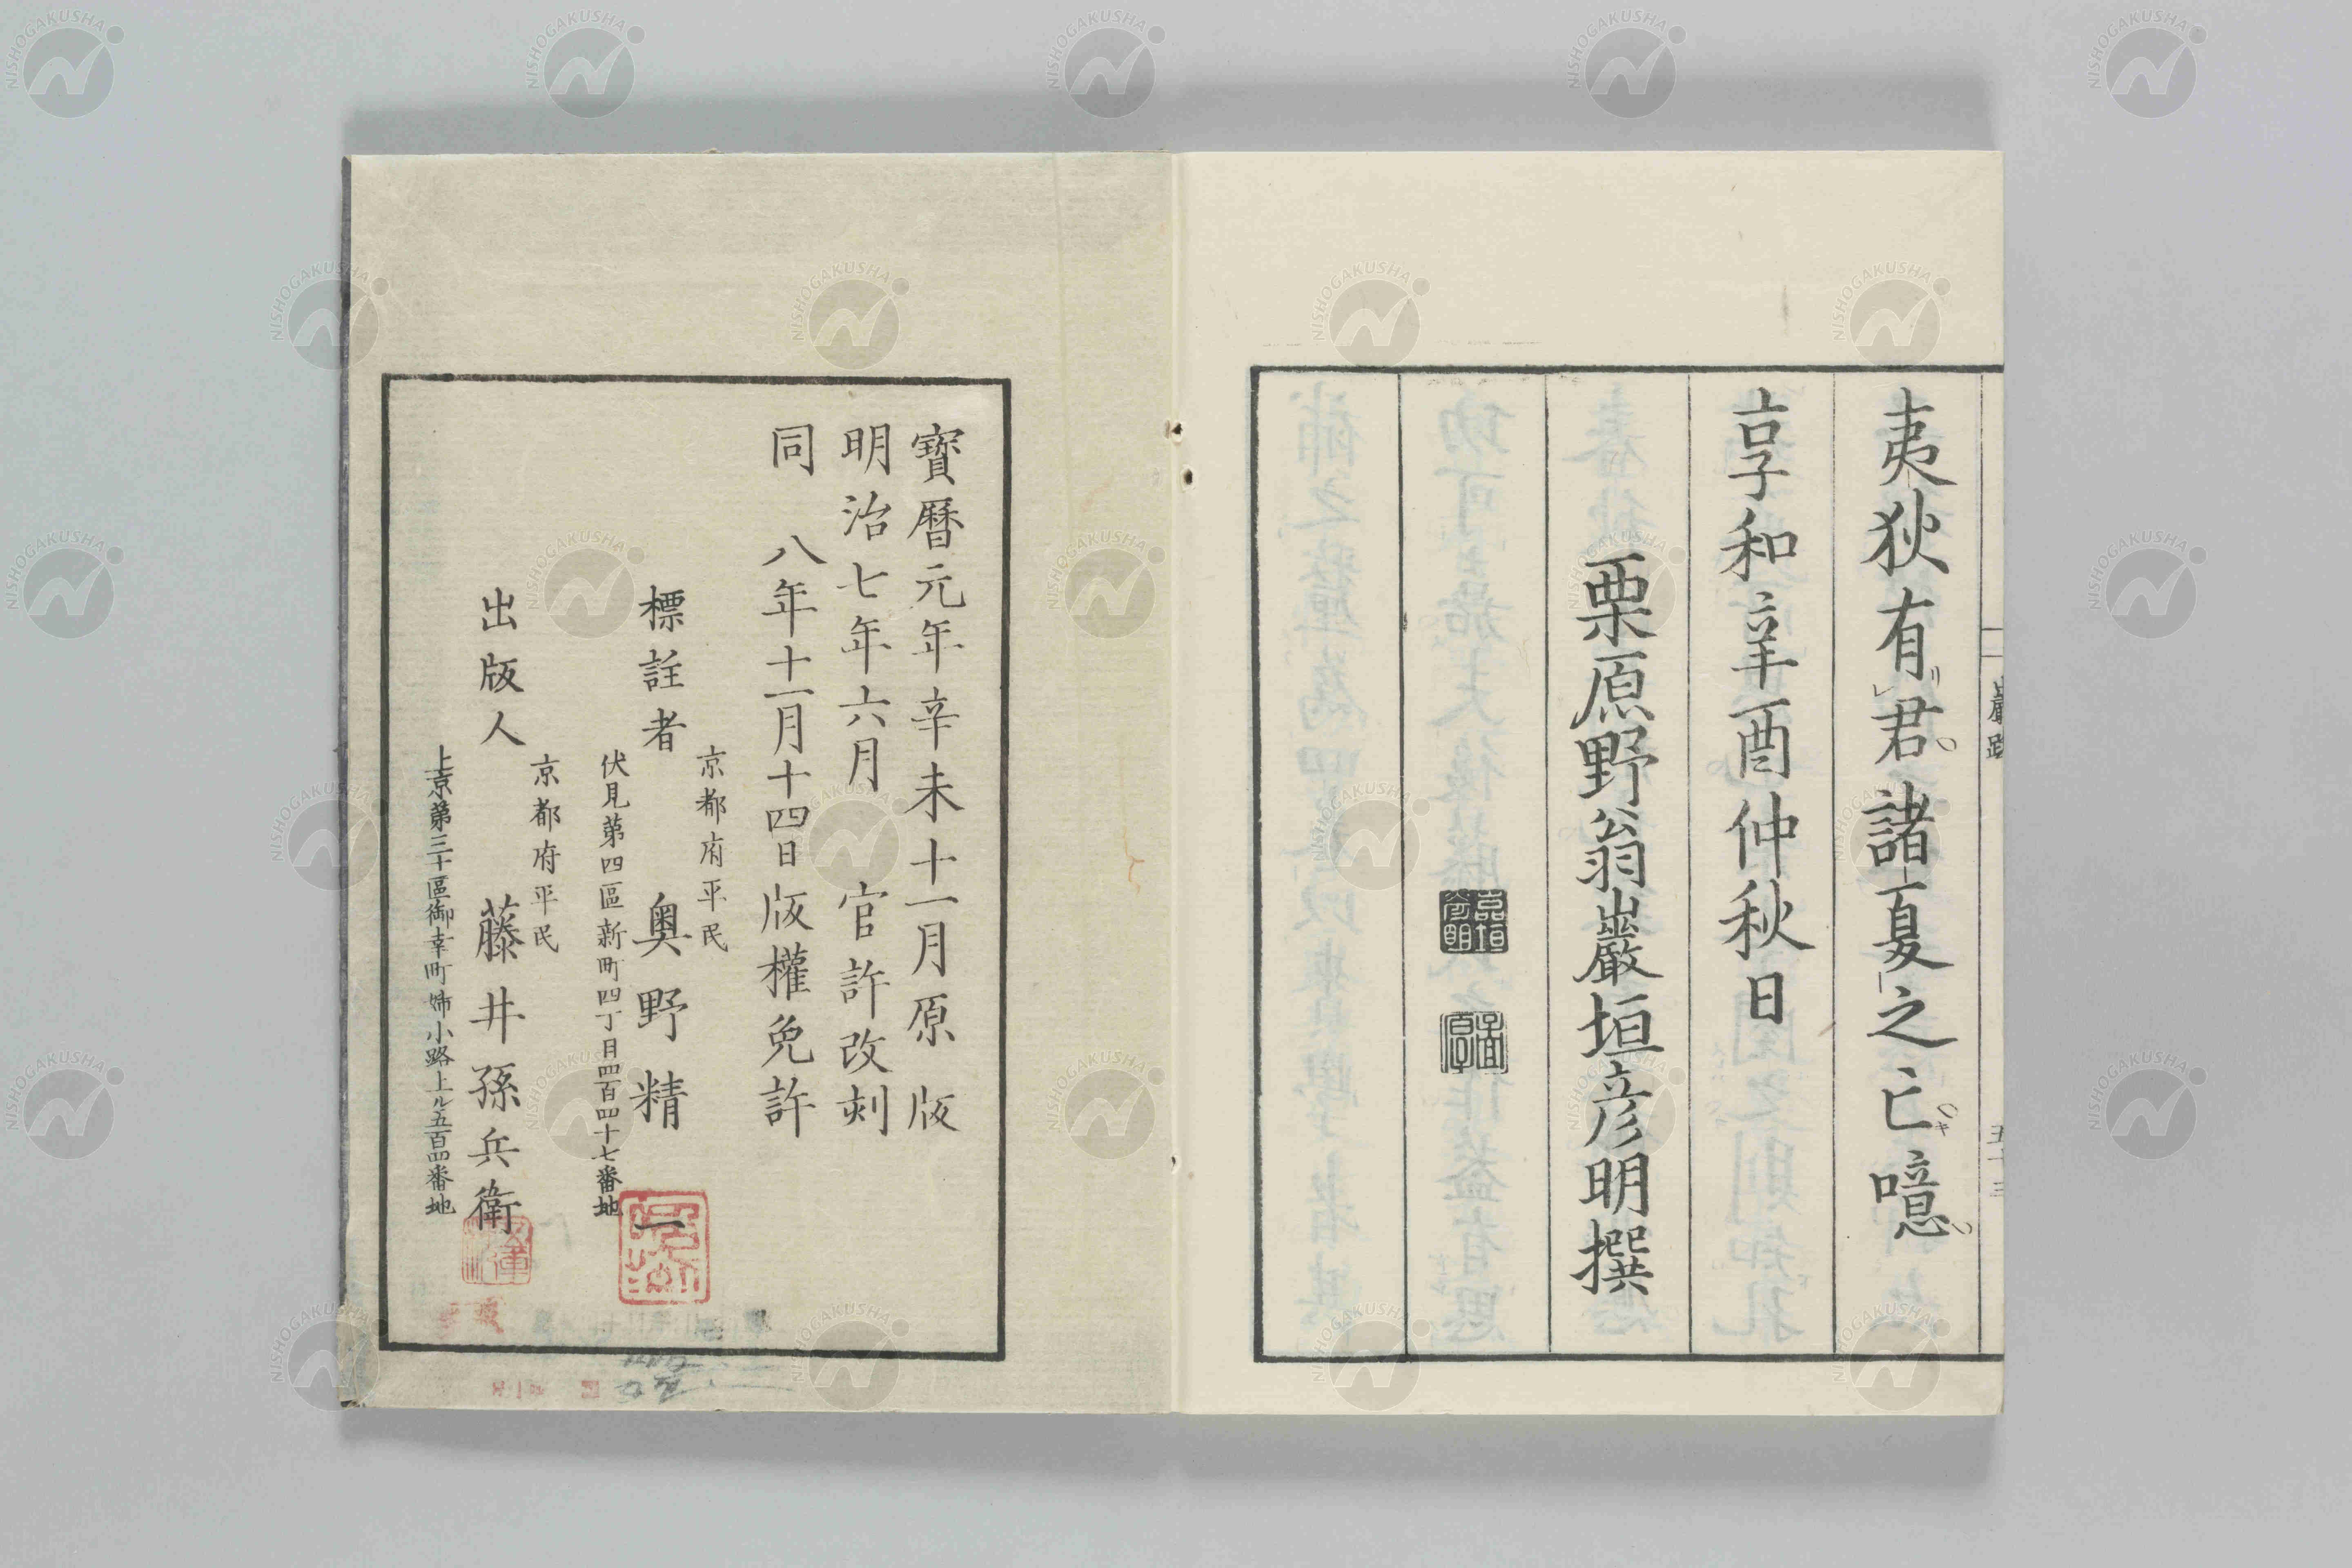 夷狄有君諸夏之亡噫
享和辛酉仲秋日
栗原野翁巖垣彦明撰
巖跋
五十三
寶曆元年辛未十一月原版
明治七年六月官許改刻
同八年十一月十四日版權免許
京都府平民
標註者 奥野精一
伏見第四區新町四丁目四百四十七番地
京都府平民
出版人 藤井孫兵衛
上京第三十區御幸町姉小路上ル五百四番地
NISHOGAKUSHA